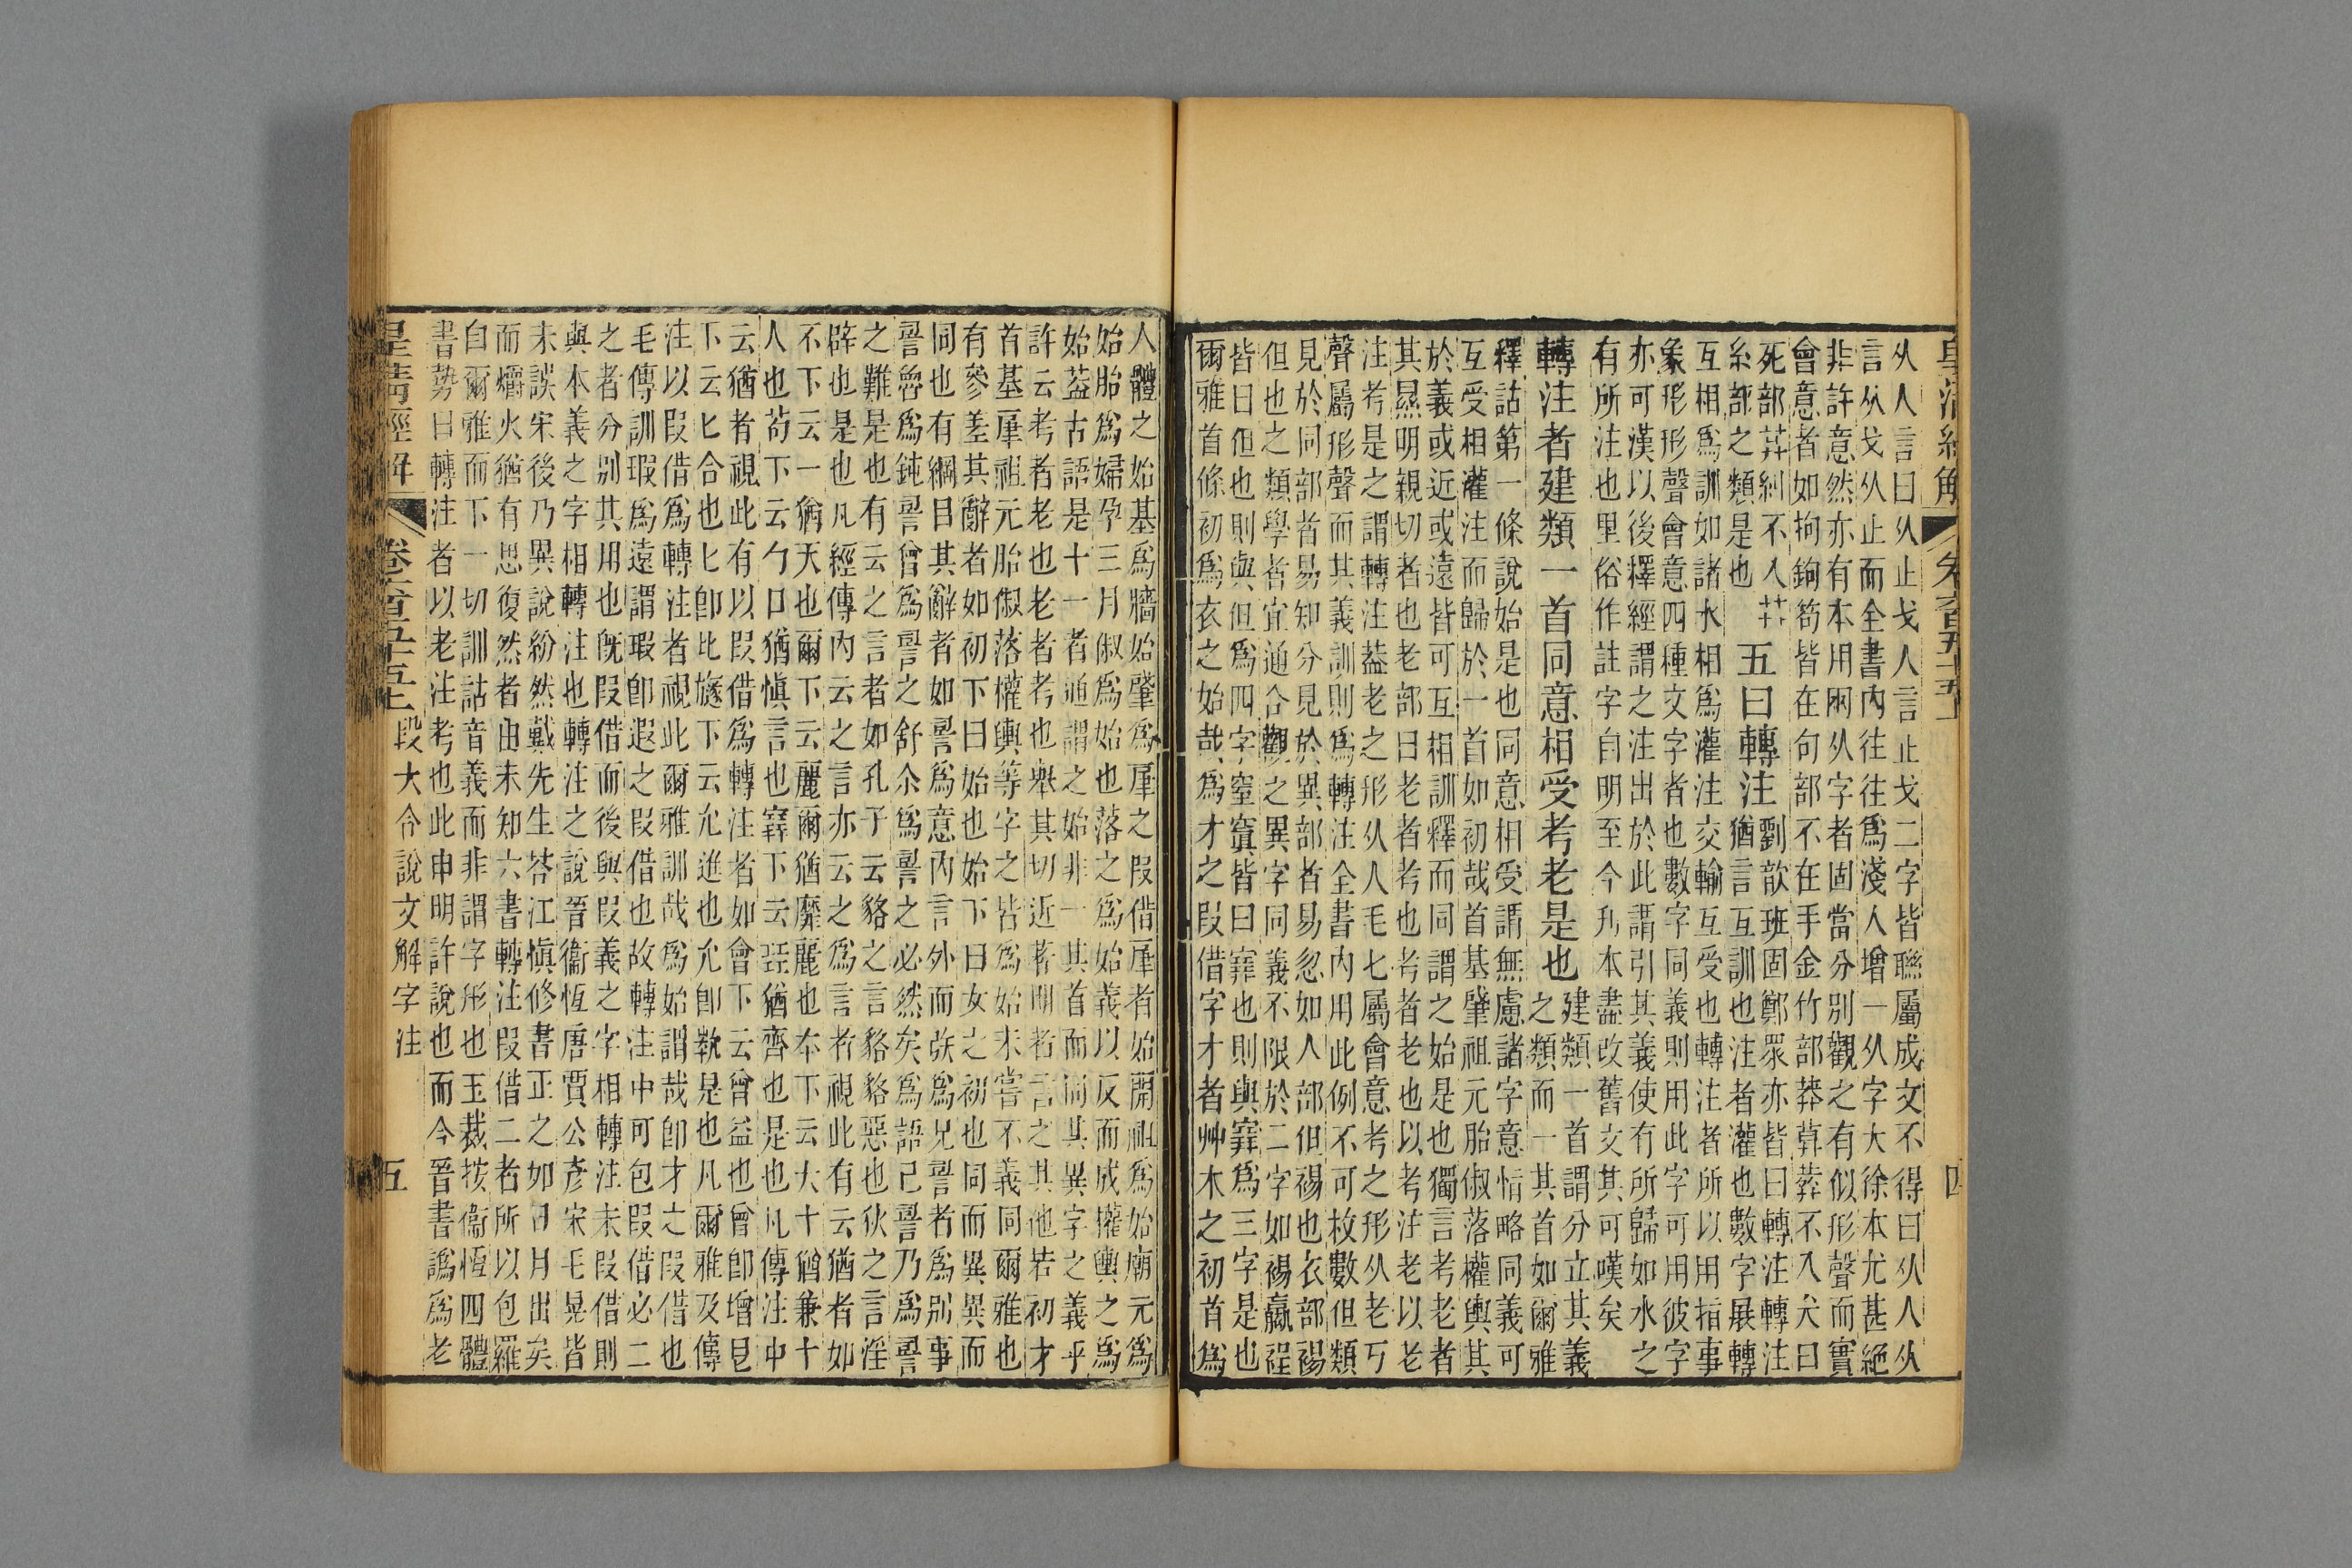 皇清經解
卷六百五十五上
四
从人言曰从止戈人言止戈二字皆聯屬成文不得曰从人从
言从戈从止而全書內往往爲淺人增一从字大徐本尤甚絕
非許意然亦有本用兩从字者固當分別觀之有似形聲而實
會意者如拘鉤笱皆在句部不在手金竹部莽葬不入犬日
死部茻糾不入艸
糸部之類是也
五曰轉注
劉歆班固鄭眾亦皆曰轉注轉注
猶言互訓也注者灌也數字展轉
互相爲訓如諸水相爲灌注交輸互受也轉注者所以用指事
象形形聲會意四種文字者也數字同義則用此字可用彼字
亦可漢以後釋經謂之注出於此謂引其義使有所歸如水之
有所注也里俗作註字自明至今刋本盡改舊文其可嘆矣
轉注者建類一首同意相受考老是也
建類一首謂分立其義
之類而一其首如爾雅
釋詁第一條說始是也同意相受謂無慮諸字意恉略同義可
互受相灌注而歸於一首如初哉首基肈祖元胎俶落權輿其
於義或近或遠皆可互相訓釋而同謂之始是也獨言考老者
其㬎明親切者也老部曰老者考也考者老也以考注老以老
注考是之謂轉注葢老之形从人毛七屬會意考之形从老丂
聲屬形聲而其義訓則爲轉注全書內用此例不可枚數但類
見於同部者易知分見於異部者易忽如人部但裼也衣部裼
但也之類學者宜通合觀之異字同義不限於二字如裼臝裎
皆曰但也則與但爲四字窒窴皆曰窡也則與窡爲三字是也
爾雅首條初爲衣之始哉爲才之叚借字才者艸木之初首爲
人體之始基爲牆始肈爲肁之叚借肁者始開祖爲始廟元爲
始胎爲婦孕三月俶爲始也落之爲始義以反而成權輿之爲
始葢古語是十一者通謂之始非一其首而同其異字之義乎
許云考者老也老者考也舉其切近著明者言之其他若初才
首基肁祖元胎俶落權輿等字之皆爲始未嘗不義同爾雅也
有參差其辭者如初下曰始也始下曰女之初也同而異異而
同也有綱目其辭者如䛐爲意內言外而矤爲兄䛐者爲別事
䛐魯爲鈍䛐曾爲䛐之舒尒爲䛐之必然矣爲語已䛐乃爲䛐
之難是也有云之言者如孔子云貉之言貉貉惡也狄之言淫
辟也是也凡經傳內云之言亦云之爲言者視此有云猶者如
不下云一猶天也爾下云麗爾猶靡麗也夲下云大十猶兼十
人也苟下云勹口猶愼言也窡下云㠭猶齊也是也凡傳注中
云猶者視此有以叚借爲轉注者如會下云曾益也曾卽增皀
下云匕合也匕卽比㫍下云允進也允卽㽙是也凡爾雅及傳
注以叚借爲轉注者視此爾雅訓哉爲始謂哉卽才之叚借也
毛傳訓瑕爲遠謂瑕卽遐之叚借也故轉注中可包叚借必二
之者分別其用也旣叚借而後與叚義之字相轉注未叚借則
與本義之字相轉注也轉注之說晉衞恆唐賈公彥宋毛晃皆
未誤宋後乃異說紛然戴先生荅江愼修書正之如日月出矣
而爝火猶有思復然者由未知六書轉注叚借二者所以包羅
自爾雅而下一切訓詁音義而非謂字形也玉裁按衞恆四體
書勢曰轉注者以老注考也此申明許說也而今晉書譌爲老
皇清經解
卷六百五十五上
段大令說文解字注
五